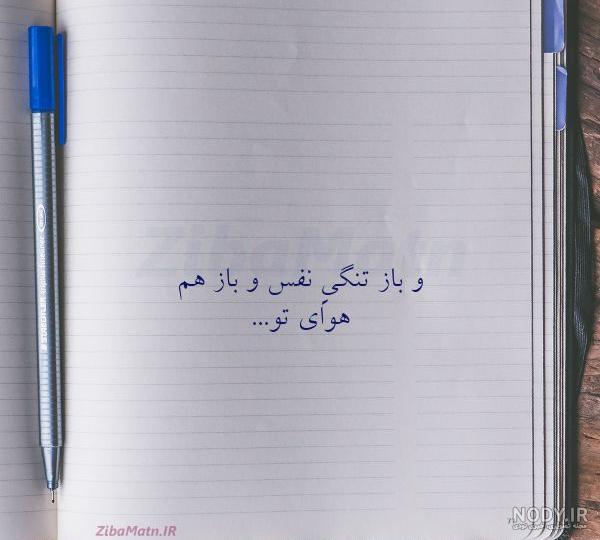 ZibaMatn
و باز تنگیِ نفس و باز هم
هوای تو...
ZibaMatn.IR
NODY.IR